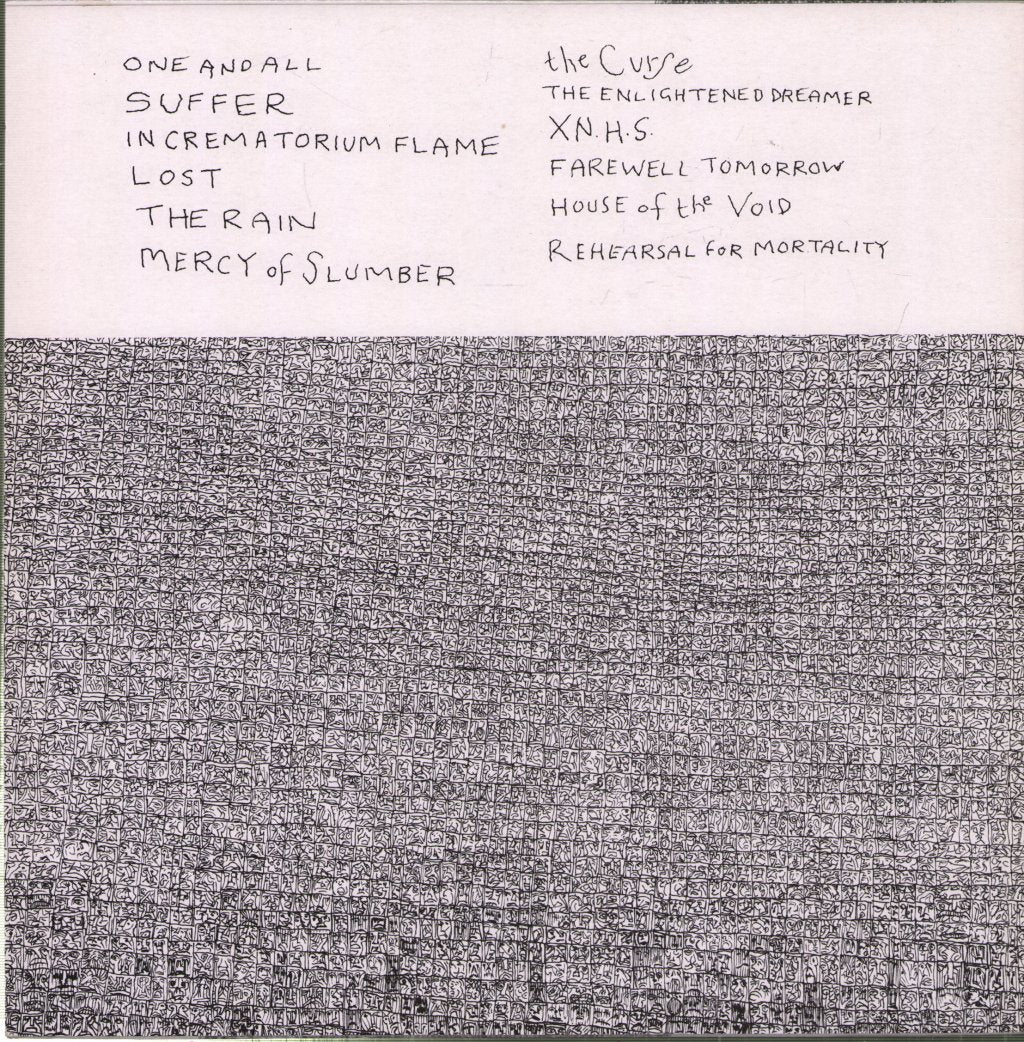 ONE AND ALL
SUFFER
IN CREMATORIUM FLAME
LOST
THE RAIN
MERCY of SLUMBER
the Curse
THE ENLIGHTENED DREAMER
XN.H.S.
FAREWELL TOMORROW
HOUSE of the VOID
REHEARSAL FOR MORTALITY